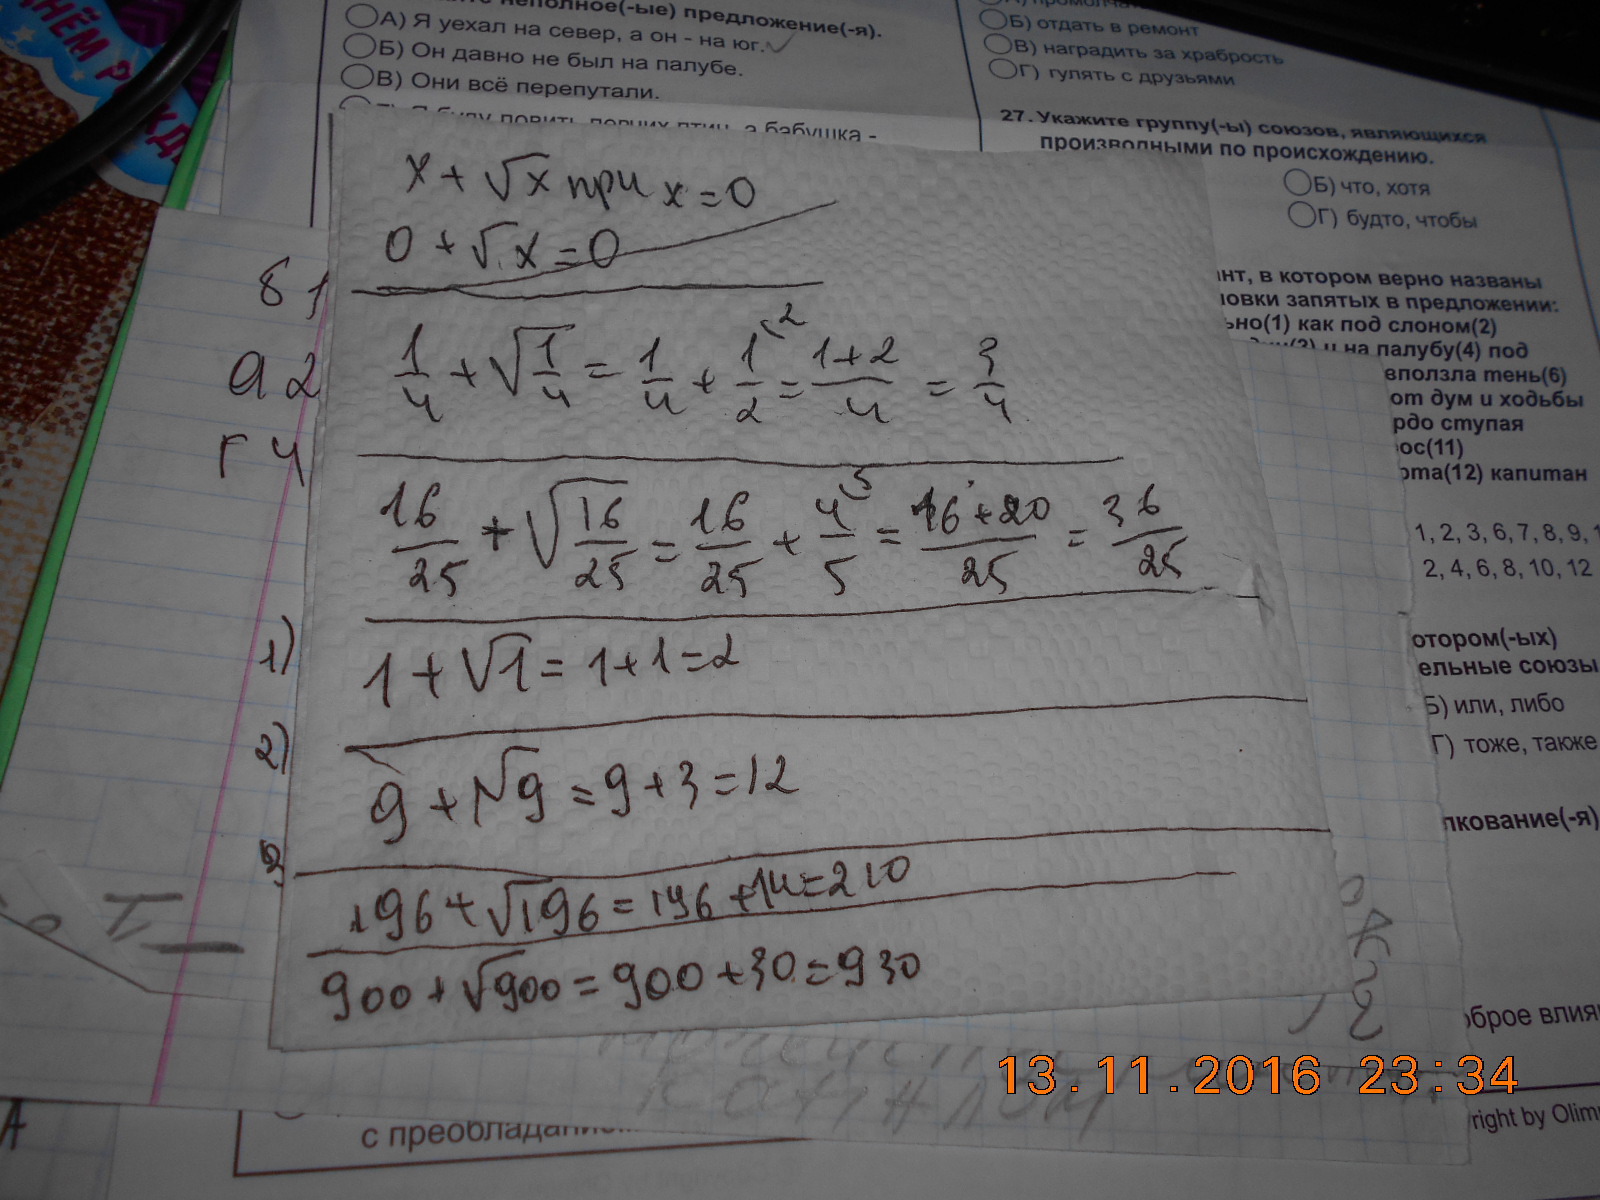 неполное(-ые) предложение(-я).
А) Я уехал на север, а он - на юг.
Б) Он давно не был на палубе.
В) Они всё перепутали.
Б) отдать в ремонт
В) наградить за храбрость
Г) гулять с друзьями
27. Укажите группу(-ы) союзов, являющихся
производными по происхождению.
Б) что, хотя
Г) будто, чтобы
в котором верно названы
запятых в предложении:
как под слоном(2)
и на палубу(4) под
вползла тень(6)
от дум и ходьбы
ступая
капитан
1, 2, 3, 6, 7, 8, 9,
2, 4, 6, 8, 10, 12
союзы
Б) или, либо
Г) тоже, также
x + √x при x = 0
0 + √x = 0
б 1
а 2
г 4
1/4 + √1/4 = 1/4 + 1/2 ² = 1+2/4 = 3/4
16/25 + √16/25 = 16/25 + 4/5 ⁵ = 16+20/25 = 36/25
1) 1 + √1 = 1 + 1 = 2
2) 9 + √9 = 9 + 3 = 12
3 196 + √196 = 196 + 14 = 210
900 + √900 = 900 + 30 = 930
13.11.2016 23:34
с
by